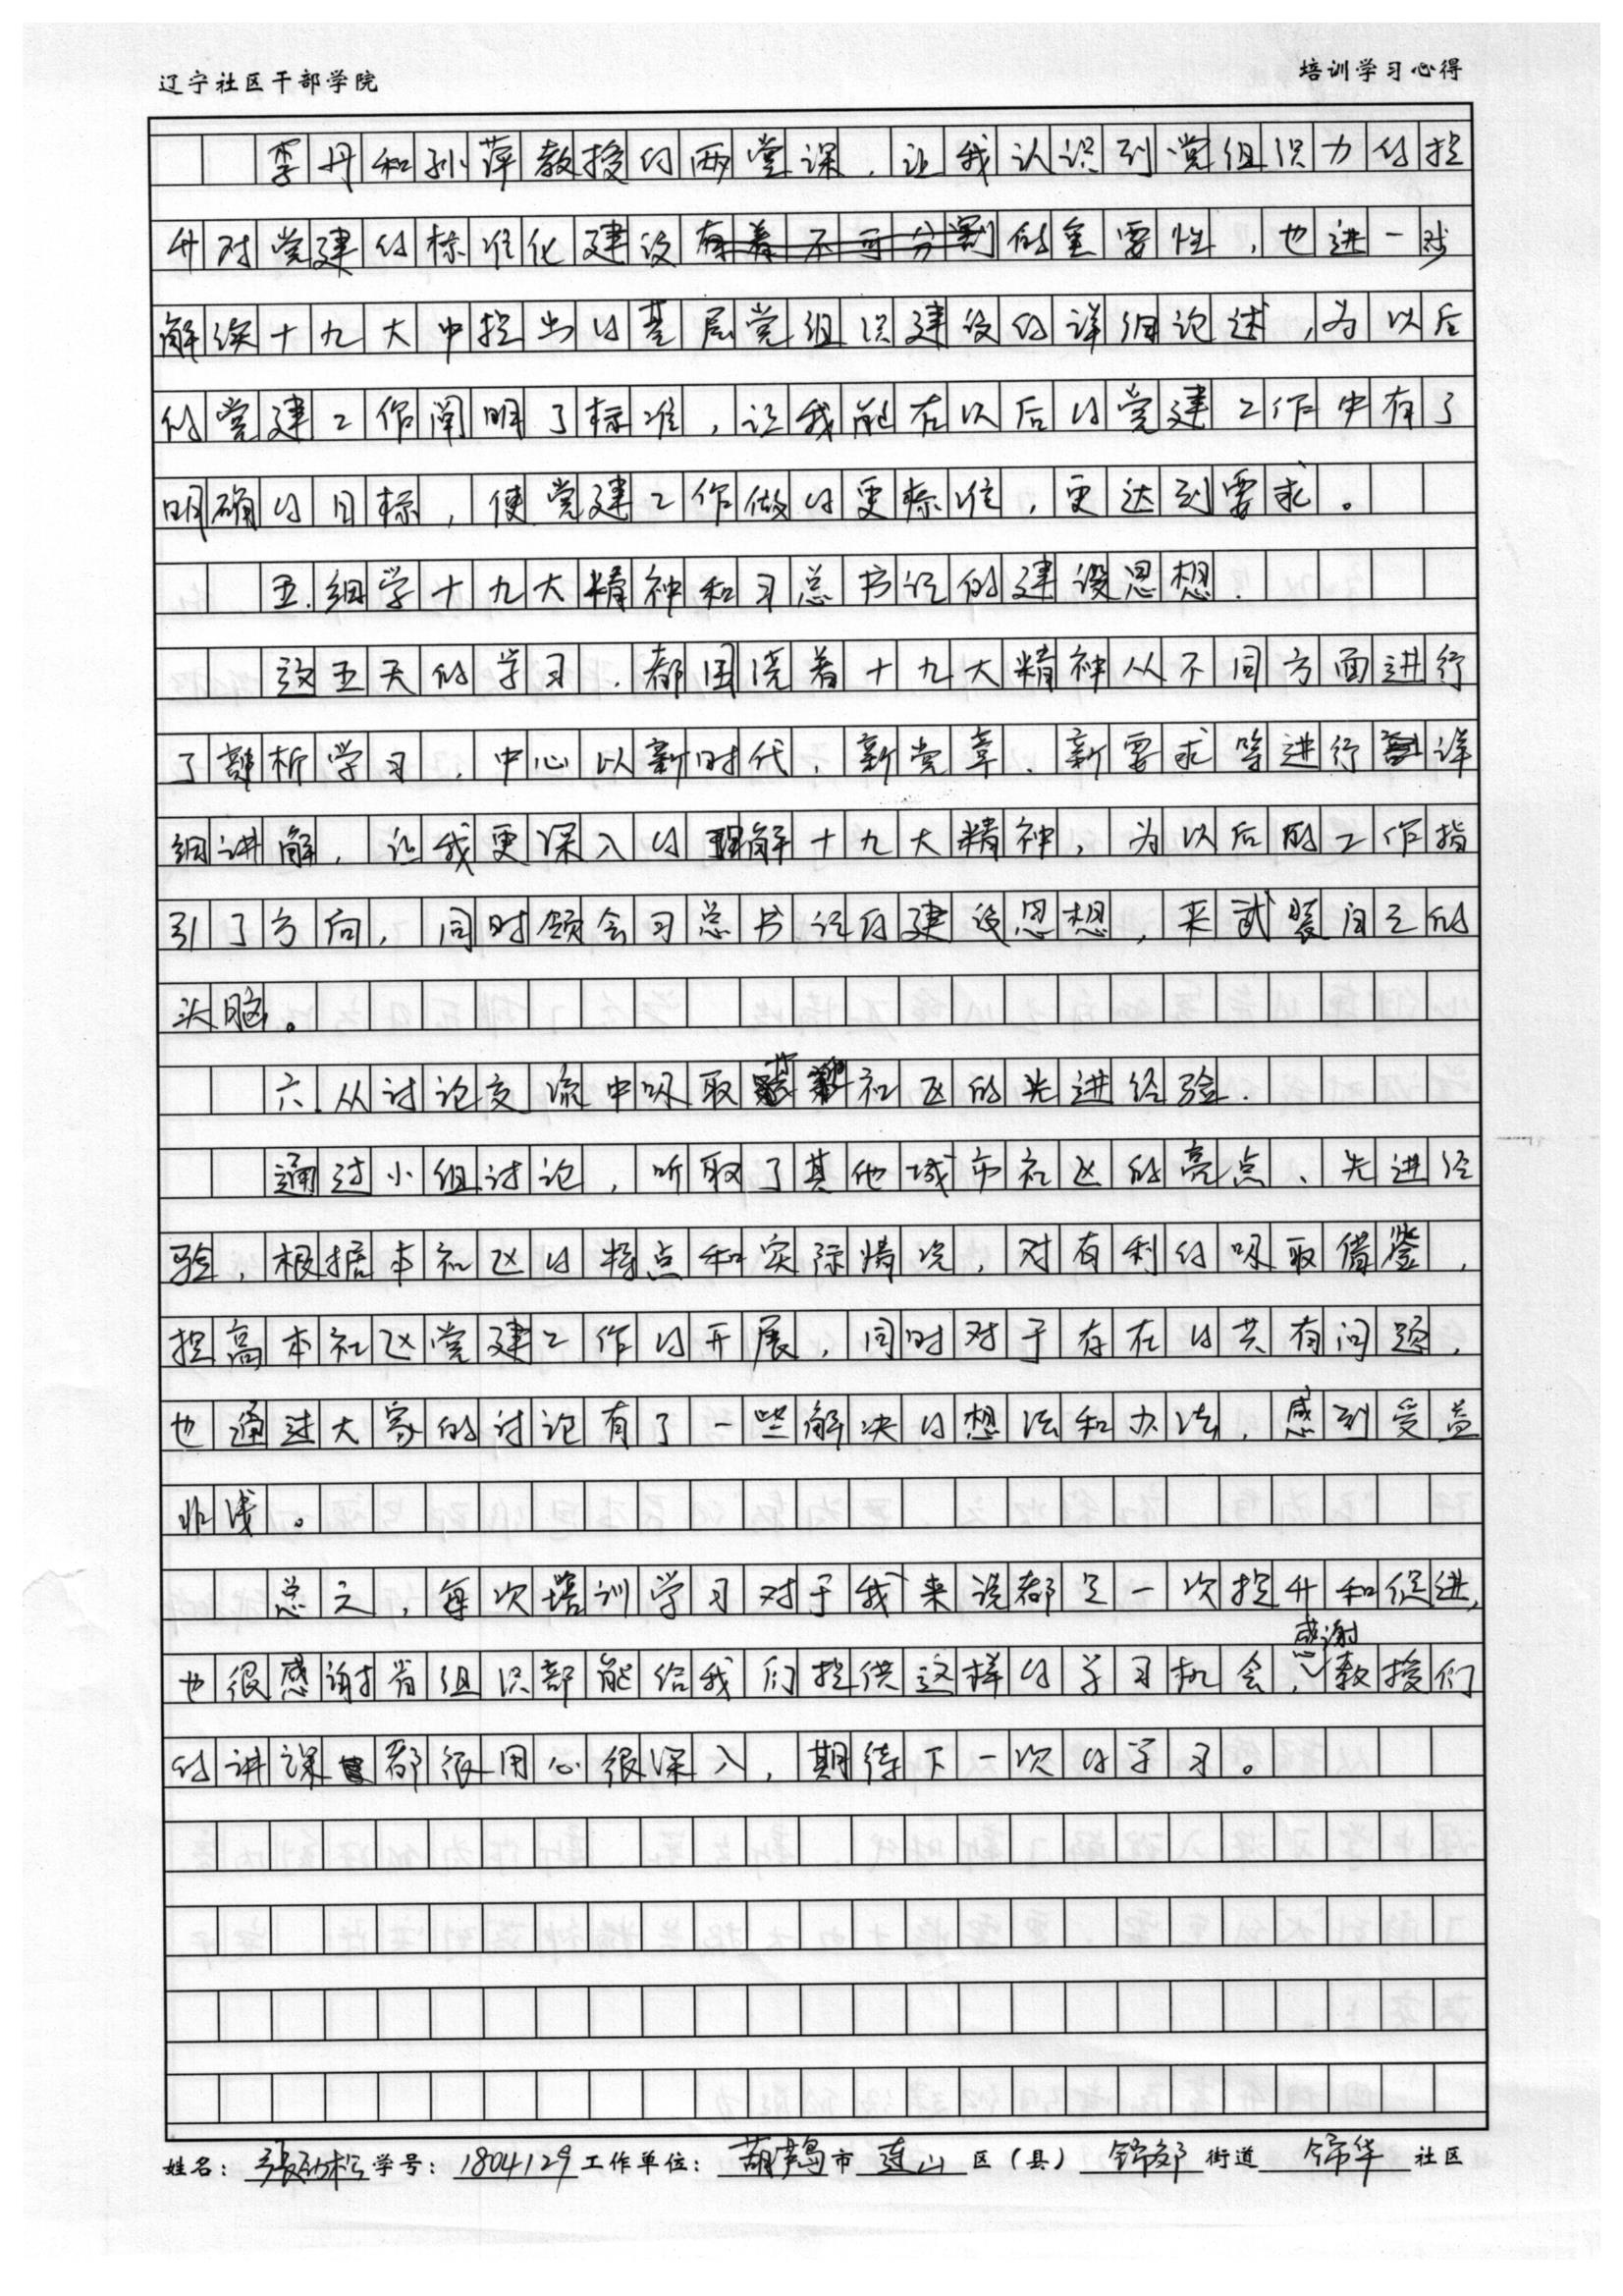 辽宁社区干部学院
培训学习心得
李丹和孙萍教授的两堂课，让我认识到党组织力的提
升对党建的标准化建设的重要性，也进一步
解读十九大中提出的基层党组织建设的详细论述，为以后
的党建工作阐明了标准，让我能在以后的党建工作中有了
明确的目标，使党建工作做的更标准，更达到要求。
五.细学十九大精神和习总书记的建设思想.
这五天的学习，都围绕着十九大精神从不同方面进行
了辩析学习，中心以新时代、新党章、新要求等进行详
细讲解，让我更深入的理解十九大精神，为以后的工作指
引了方向，同时领会习总书记的建设思想，来武装自己的
头脑。
六.从讨论交流中吸取社区的先进经验.
通过小组讨论，听取了其他城市社区的亮点、先进经
验，根据本社区的特点和实际情况，对有利的吸取借鉴，
提高本社区党建工作的开展，同时对于存在的共有问题，
也通过大家的讨论有了一些解决的想法和办法，感到受益
非浅。
总之，每次培训学习对于我来说都是一次提升和促进，
也很感谢省组织部能给我们提供这样的学习机会，感谢教授们
的讲课都很用心很深入，期待下一次的学习。
姓名：张 学号：1804129 工作单位：葫芦岛市 连山 区（县） 锦郊 街道 锦华 社区